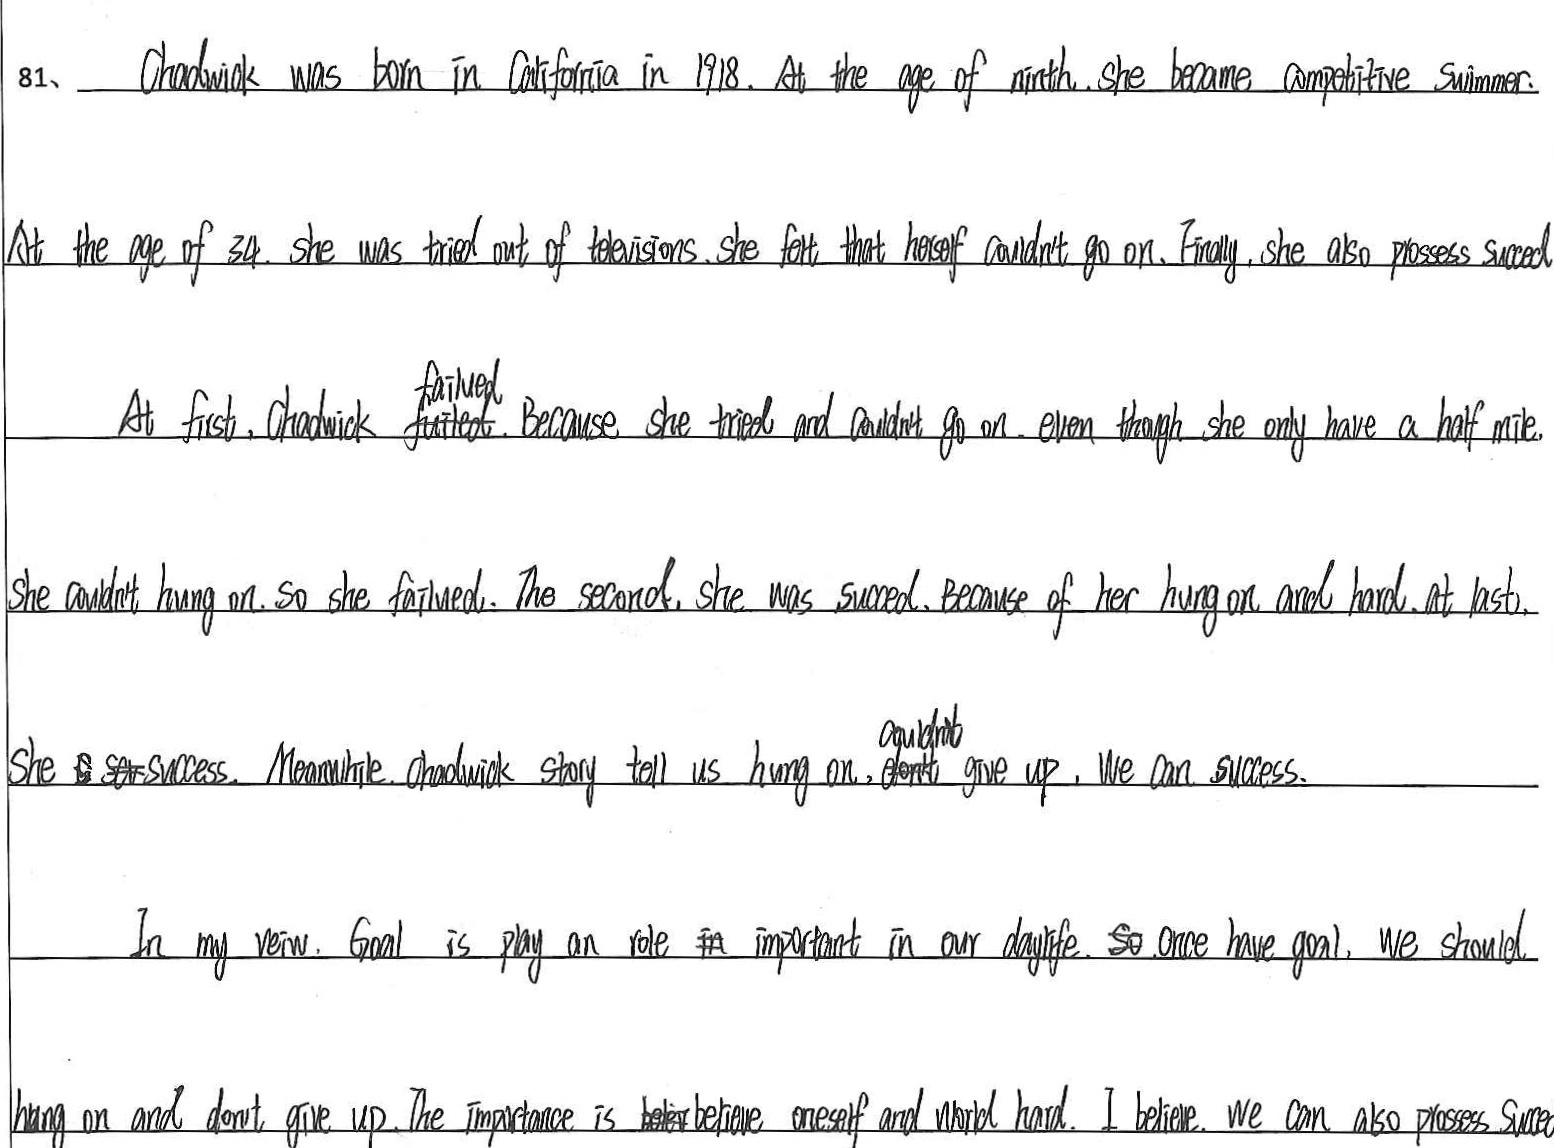 81、 Chadwick was born in California in 1918. At the age of ninth. she became competitive swimmer.
At the age of 34. she was tried out of televisions. she felt that herself couldn't go on. Finally, she also prossess succed
failued
At first, Chadwick failed. Because she tried and couldn't go on. even though she only have a half mile.
she couldn't hung on. So she failued. The second, she was succed. Because of her hung on and hard. At last,
she success. Meanwhile. Chadwick story tell us hung on, give up, We can success.
In my veiw. Goal is play an role in important in our daylife. So once have goal, we should
hung on and don't give up. The importance is believe oneself and world hard. I believe. We can also prossess succe